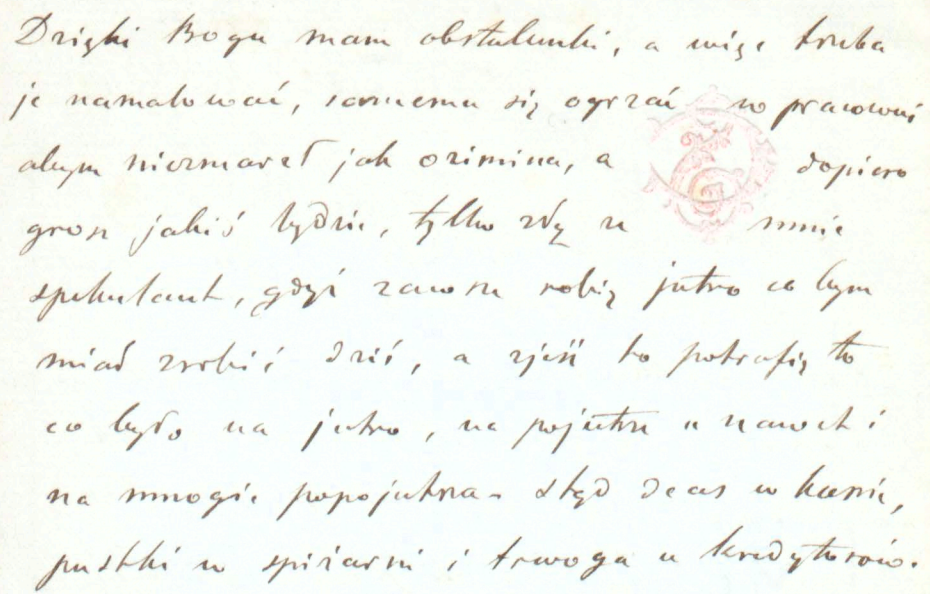 Dzięki Bogu mam obstalunki, a więc trzba
je namalować, samemu się ogrzać w pracowni
abym niezmarzł jak ozimina, a dopiero
grosz jakiś będzie, tylko zły ze mnie
spekulant, gdyż zawsze robię jutro co bym
miał zrobić dziś, a zjeść to potrafię to
co było na jutro, na pojutrze a nawet i
na mnogie popojutrza – stąd deas w kasie,
pustki w spiżarni i trwoga u kredytorów.